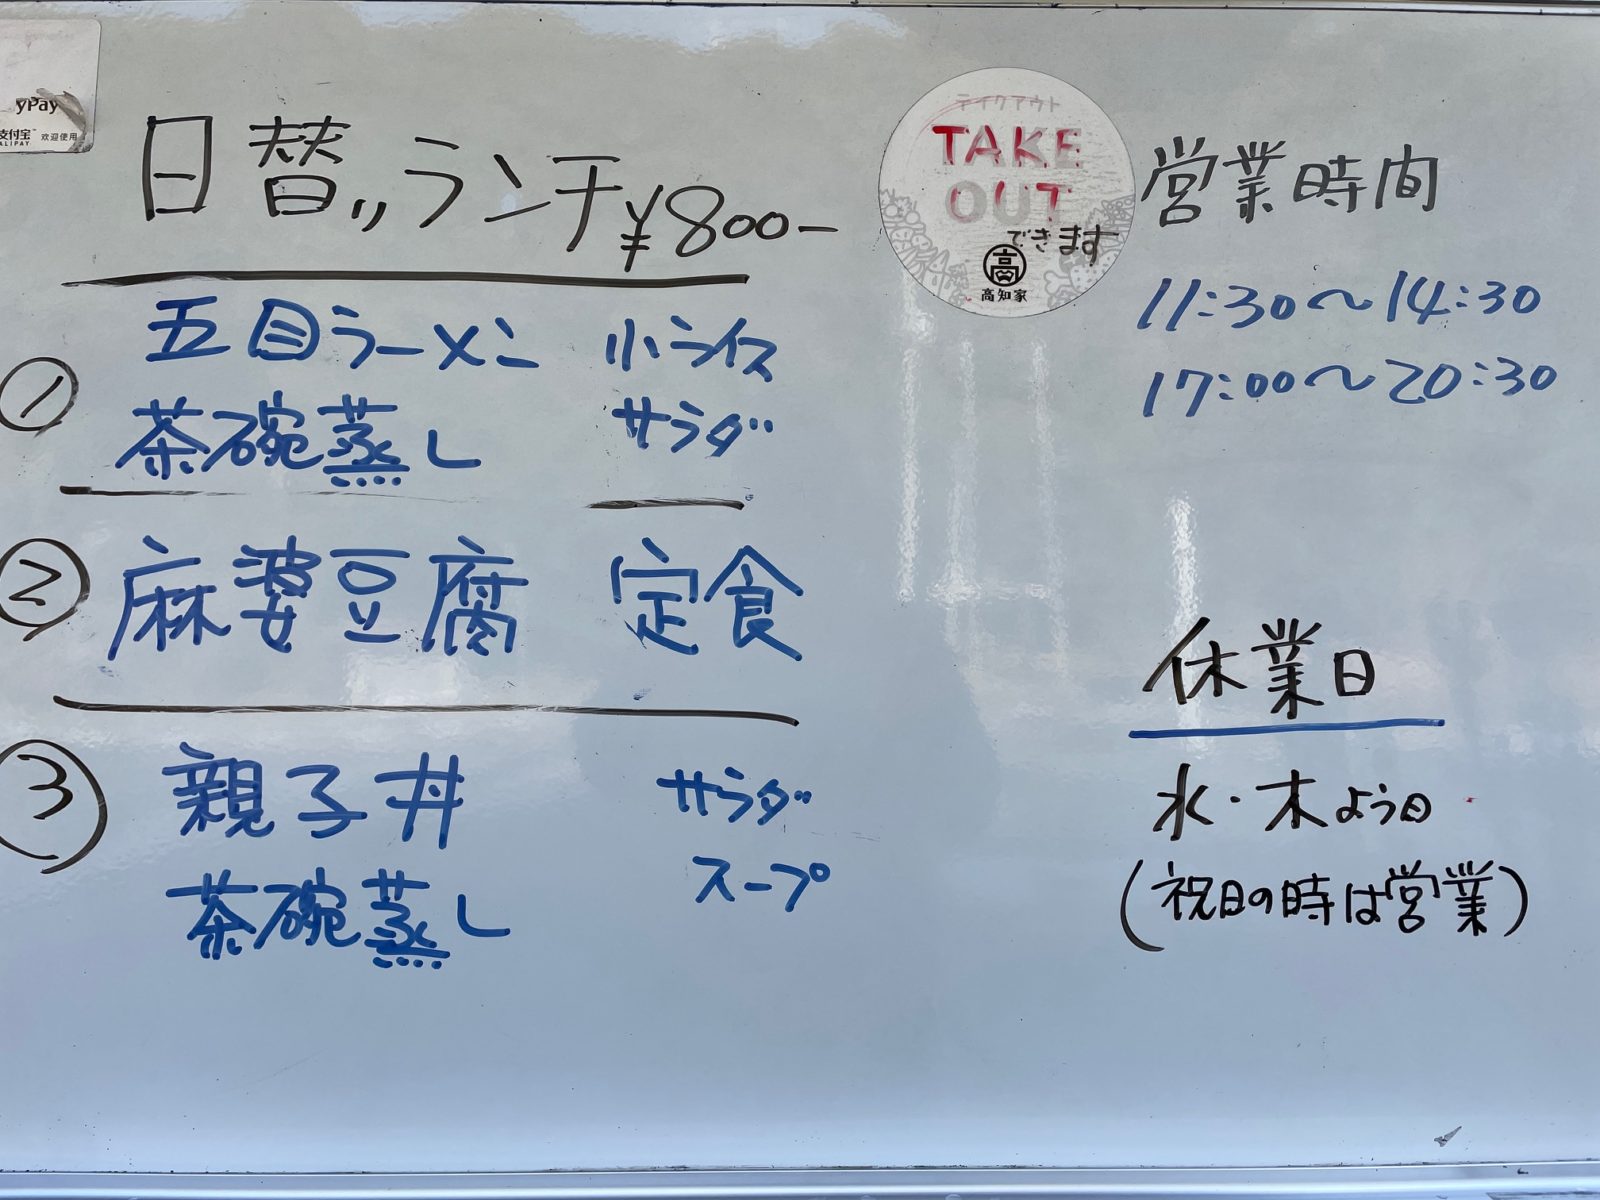 yPay
支付宝 欢迎使用
ALIPAY
日替りランチ ¥800-
① 五目ラーメン 小ライス
茶碗蒸し サラダ
② 麻婆豆腐 定食
③ 親子丼 サラダ
茶碗蒸し スープ
テイクアウト
TAKE
OUT
できます
高
高知家
営業時間
11:30〜14:30
17:00〜20:30
休業日
水・木よう日
(祝日の時は営業)